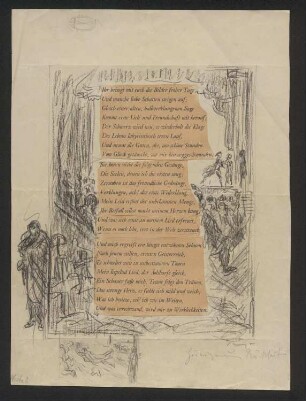 Ihr bringt mit euch die Bilder froher Tage,
Und manche liebe Schatten steigen auf;
Gleich einer alten, halbverklungnen Sage
Kommt erste Lieb und Freundschaft mit herauf;
Der Schmerz wird neu, es wiederholt die Klage
Des Lebens labyrinthisch irren Lauf,
Und nennt die Guten, die, um schöne Stunden
Vom Glück getäuscht, vor mir hinweggeschwunden.
Sie hören nicht die folgenden Gesänge,
Die Seelen, denen ich die ersten sang;
Zerstoben ist das freundliche Gedränge,
Verklungen, ach! der erste Widerklang.
Mein Leid ertönt der unbekannten Menge,
Ihr Beifall selbst macht meinem Herzen bang,
Und was sich sonst an meinem Lied erfreuet,
Wenn es noch lebt, irrt in der Welt zerstreuet.
Und mich ergreift ein längst entwöhntes Sehnen
Nach jenem stillen, ernsten Geisterreich,
Es schwebet nun in unbestimmten Tönen
Mein lispelnd Lied, der Äolsharfe gleich,
Ein Schauer faßt mich, Träne folgt den Tränen,
Das strenge Herz, es fühlt sich mild und weich;
Was ich besitze, seh ich wie im Weiten,
Und was verschwand, wird mir zu Wirklichkeiten.